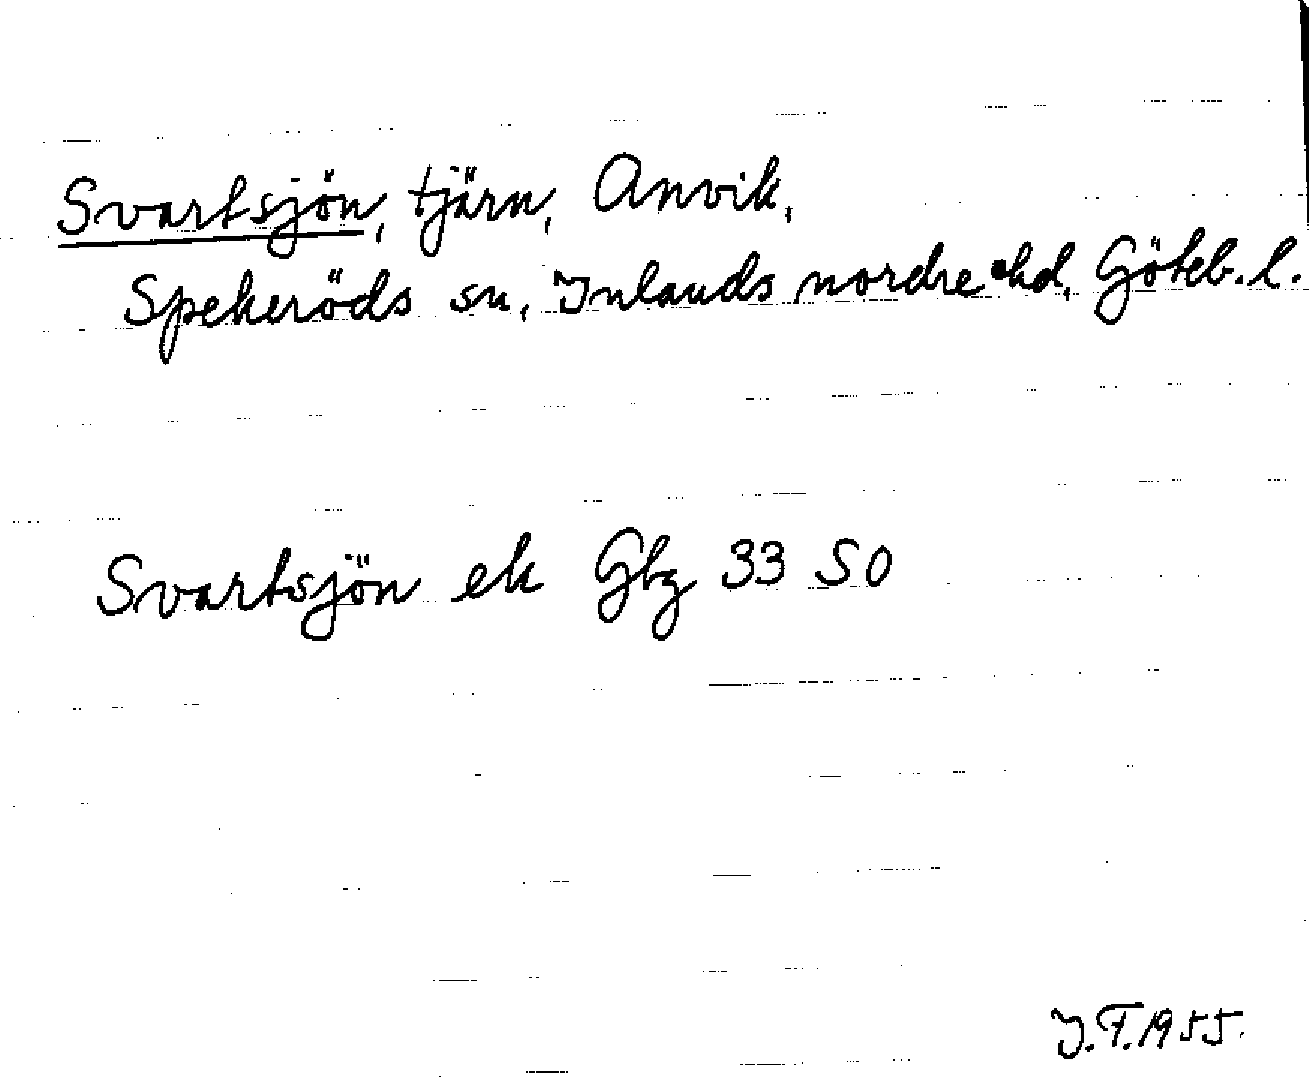 Svartsjön, tjärn, Anvik,
Spekeröds sn, Inlands nordre hd, Göteb. l.
Svartsjön ek Gbg 33 SO
J.F. 1955.